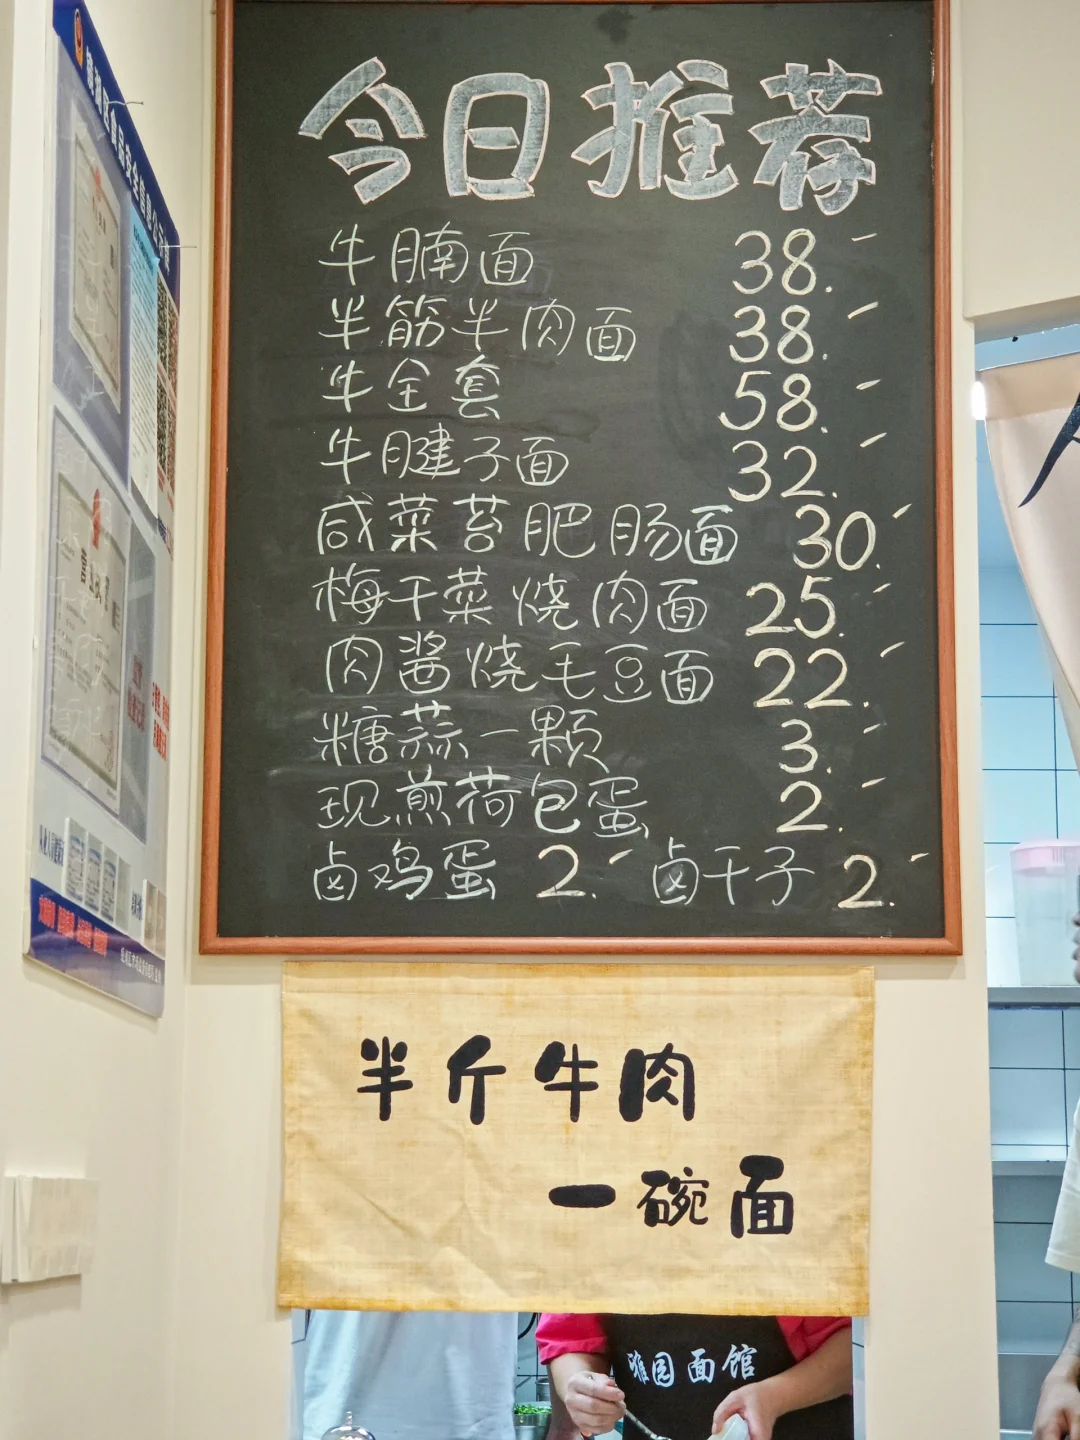 今日推荐
牛腩面 38.-
半筋半肉面 38.-
牛全套 58.-
牛腱子面 32.-
咸菜苔肥肠面 30.-
梅干菜烧肉面 25.-
肉酱烧毛豆面 22.-
糖蒜一颗 3.-
现煎荷包蛋 2.-
卤鸡蛋 2.- 卤干子 2.-
半斤牛肉
一碗面
雅园面馆